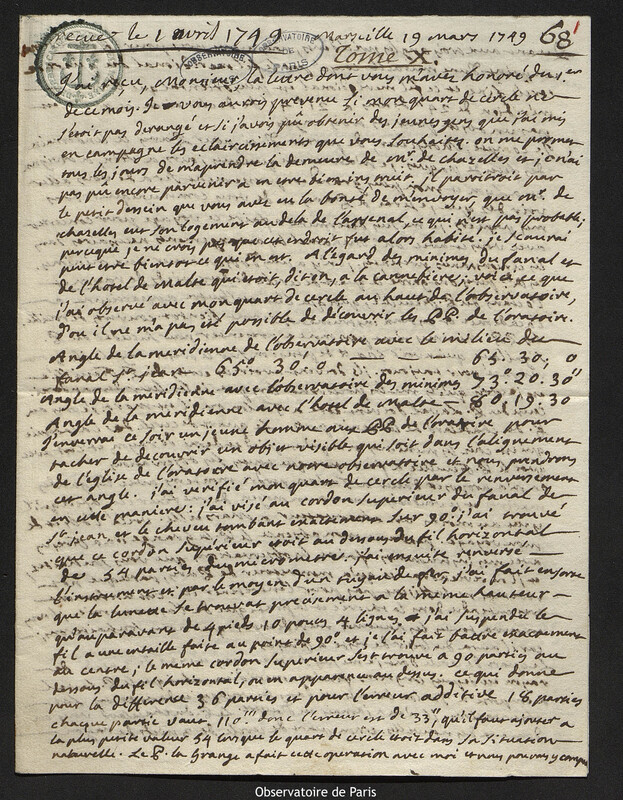 recuee le 1 avril 1749 Marseille 19 mars 1749 68 1
OBSERVATOIRE DE PARIS
Tome X.
J'ai recu, Monsieur, la lettre dont vous m'avez honoré du 1er
de ce mois. Je vous aurois prevenu si mon quart de cercle ne
s'etoit pas derangé et si j'avois pû obtenir des jeunes gens que j'ai mis
en campagne les eclaircissements que vous souhaites. on me promet
tous les jours de m'aprendre la demeure de mr. de chazelles et je n'ai
pas pû encore parvenir a en etre bien instruit, il paroitroit par
le petit dessein que vous avez eu la bonté de m'envoyer, que mr. de
chazelles eut son logement au dela de l'arsenal ce qui n'est pas probable;
parceque je ne crois pas que cet endroit fut alors habité. je scaurai
peut etre bientot ce qui en est. A l'egard des minimes du fanal et
de l'hotel de Malte qui etoit, dit on, a la cannebiere; voici ce que
j'ai observé avec mon quart de cercle au haut de l'observatoire,
d'ou il ne m'a pas eté possible de découvrir les PP. de l'oratoire.
Angle de la meridienne de l'observatoire avec le milieu du
fanal St. jean 65° 30' 0 — 65. 30, 0
Angle de la meridienne avec l'observatoire des minimes 73° 20. 30"
Angle de la meridienne avec l'hotel de Malte — 80, 19. 30
J'enverrai ce soir un jeune homme aux PP. de l'oratoire pour
tacher de decouvrir un objet visible qui soit dans l'alignement
de l'église de l'oratoire avec notre observatoire et nous prendrons
cet angle. j'ai verifié mon quart de cercle par le renversement
en cette maniere: j'ai visé au cordon superieur du fanal de
St. jean et le cheveu tombant exactement sur 90° j'ai trouvé
que ce cordon superieur etoit au dessous du fil horizontal
de 54 parties du micrometre. j'ai ensuite renversé
l'instrument et par le moyen d'un j'ai fait ensorte
que la lunette se trouvat precisement a la meme hauteur
qu'auparavant de 4 pieds 10 pouces 4 lignes j'ai suspendu le
fil a une entaille faite au point de 90° et je l'ai fait battre exactement
au centre; le meme cordon superieur s'est trouvé a 90 parties au
dessous du fil horizontal, ou en apparence au dessus. ce qui donne
pour la difference 36 parties et pour l'erreur additive 18 parties
chaque partie vaut 110''' donc l'erreur est de 33", qu'il faut ajouter a
la plus petite valeur 54 lorsque le quart de cercle etoit dans sa situation
naturelle. Le P. la Grange a fait cette operation avec moi et nous pouvons y compter
Observatoire de Paris